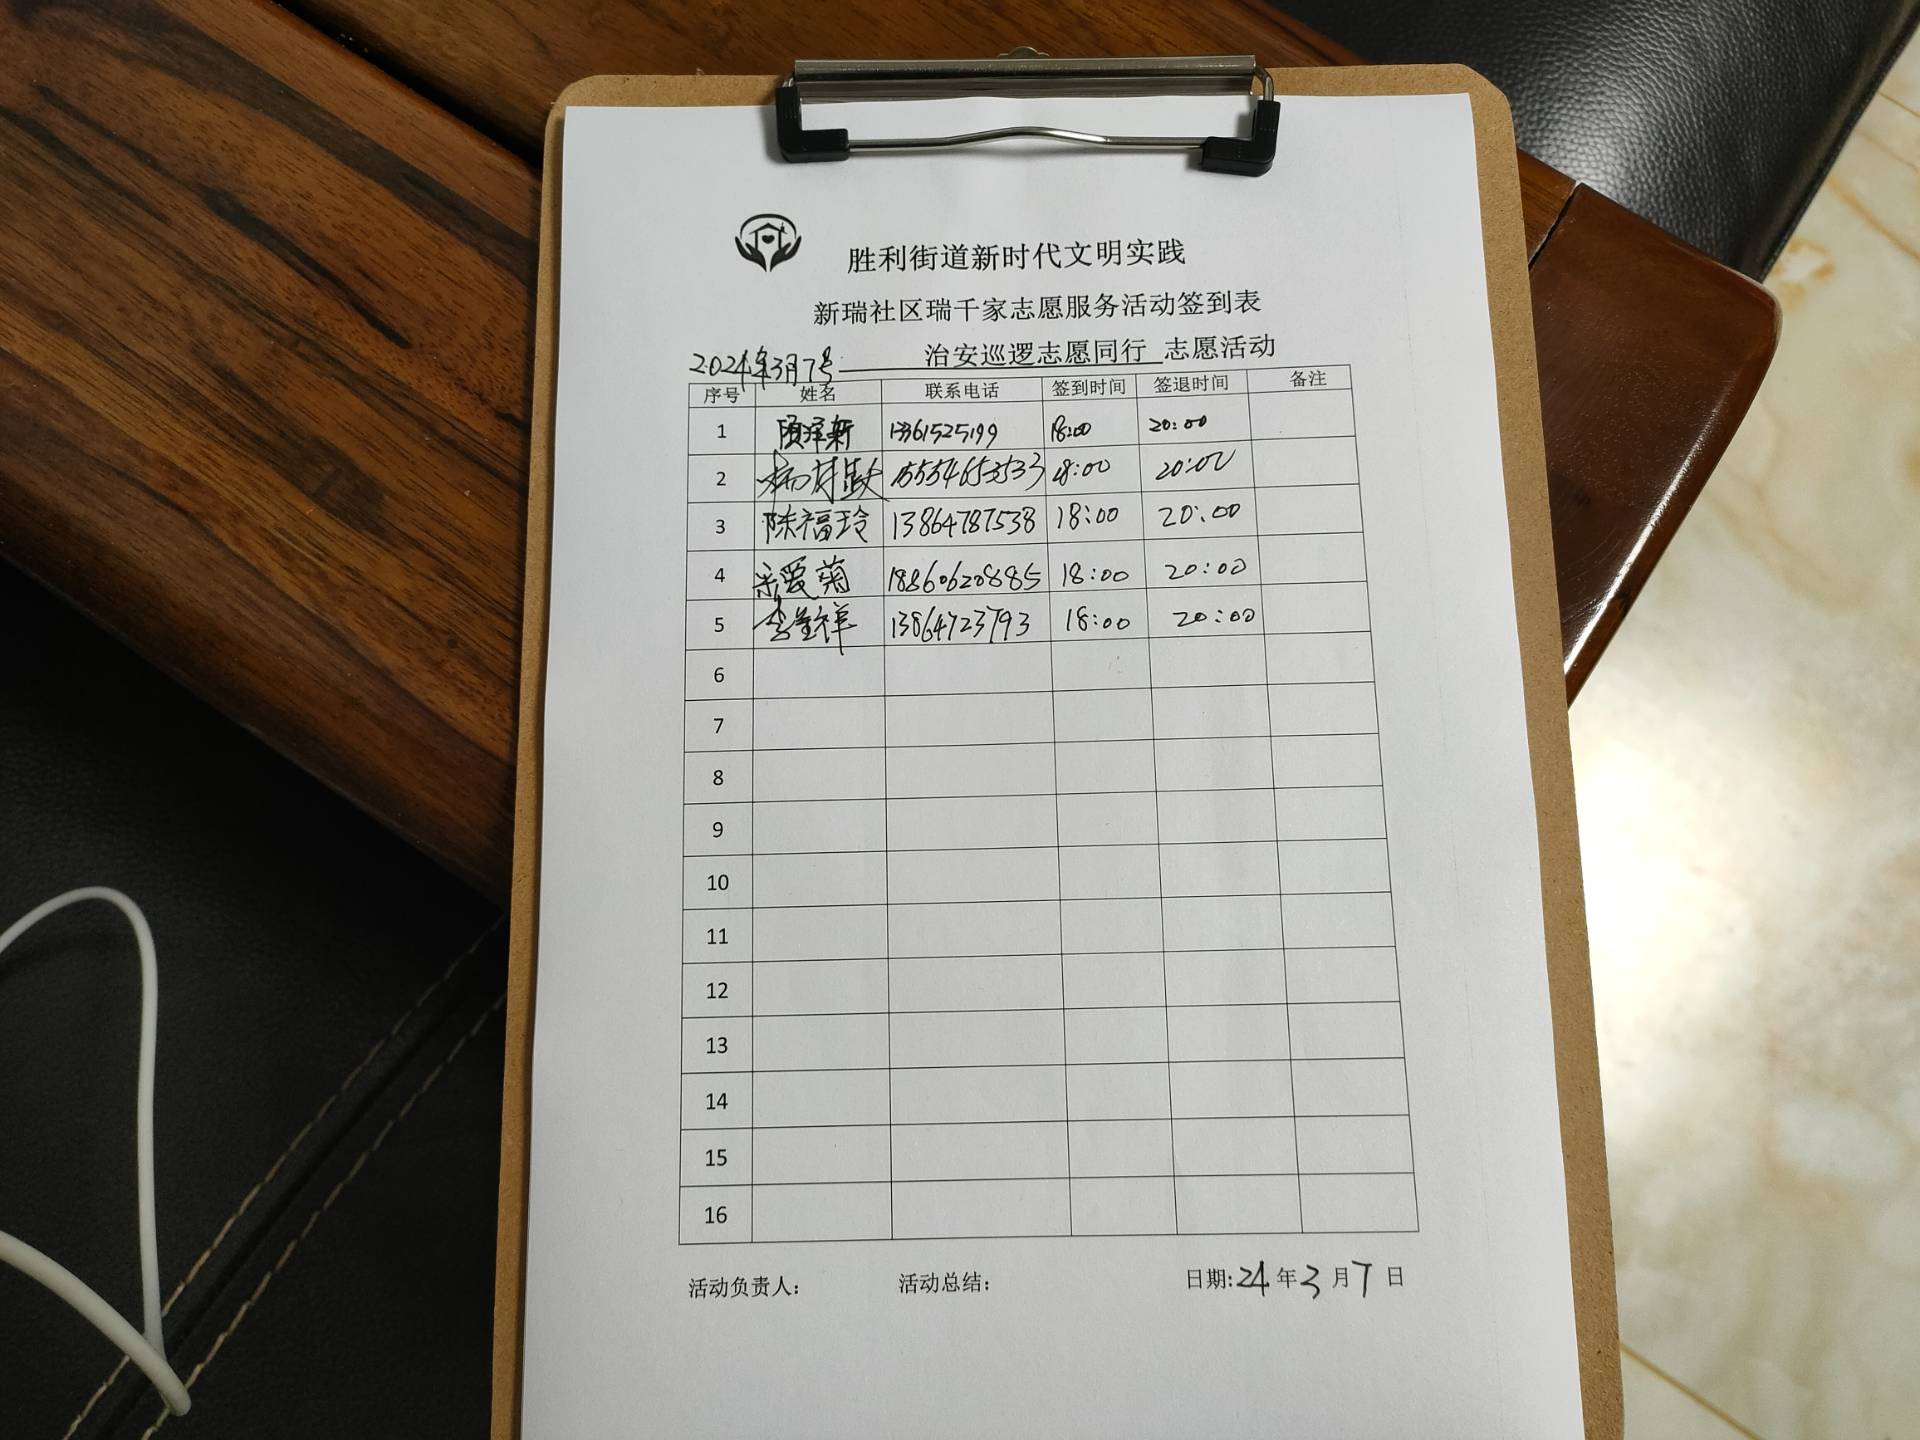 胜利街道新时代文明实践
新瑞社区瑞千家志愿服务活动签到表
2024年3月7号 治安巡逻志愿同行 志愿活动
序号 姓名 联系电话 签到时间 签退时间 备注
1 18:00 20:00
2 15554653533 18:00 20:00
3 陈福玲 13864787538 18:00 20:00
4 18860620885 18:00 20:00
5 13864723793 18:00 20:00
6
7
8
9
10
11
12
13
14
15
16
活动负责人: 活动总结: 日期:24年3月7日